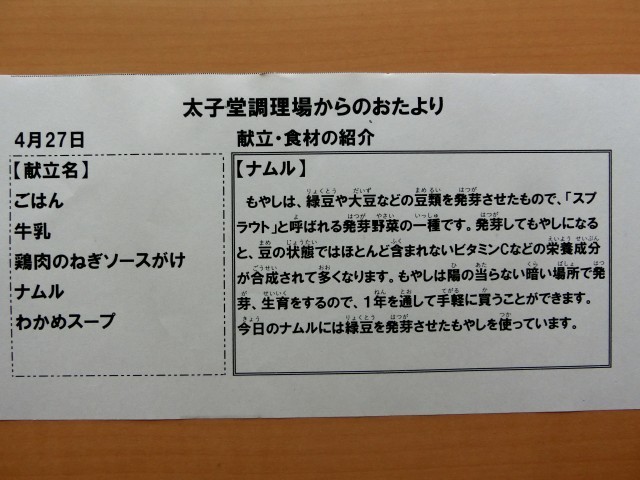 太子堂調理場からのおたより
4月27日
献立・食材の紹介
【献立名】
ごはん
牛乳
鶏肉のねぎソースがけ
ナムル
わかめスープ
【ナムル】
もやしは、緑豆や大豆などの豆類を発芽させたもので、「スプ
ラウト」と呼ばれる発芽野菜の一種です。発芽してもやしになる
と、豆の状態ではほとんど含まれないビタミンCなどの栄養成分
が合成されて多くなります。もやしは陽の当らない暗い場所で発
芽、生育をするので、1年を通して手軽に買うことができます。
今日のナムルには緑豆を発芽させたもやしを使っています。